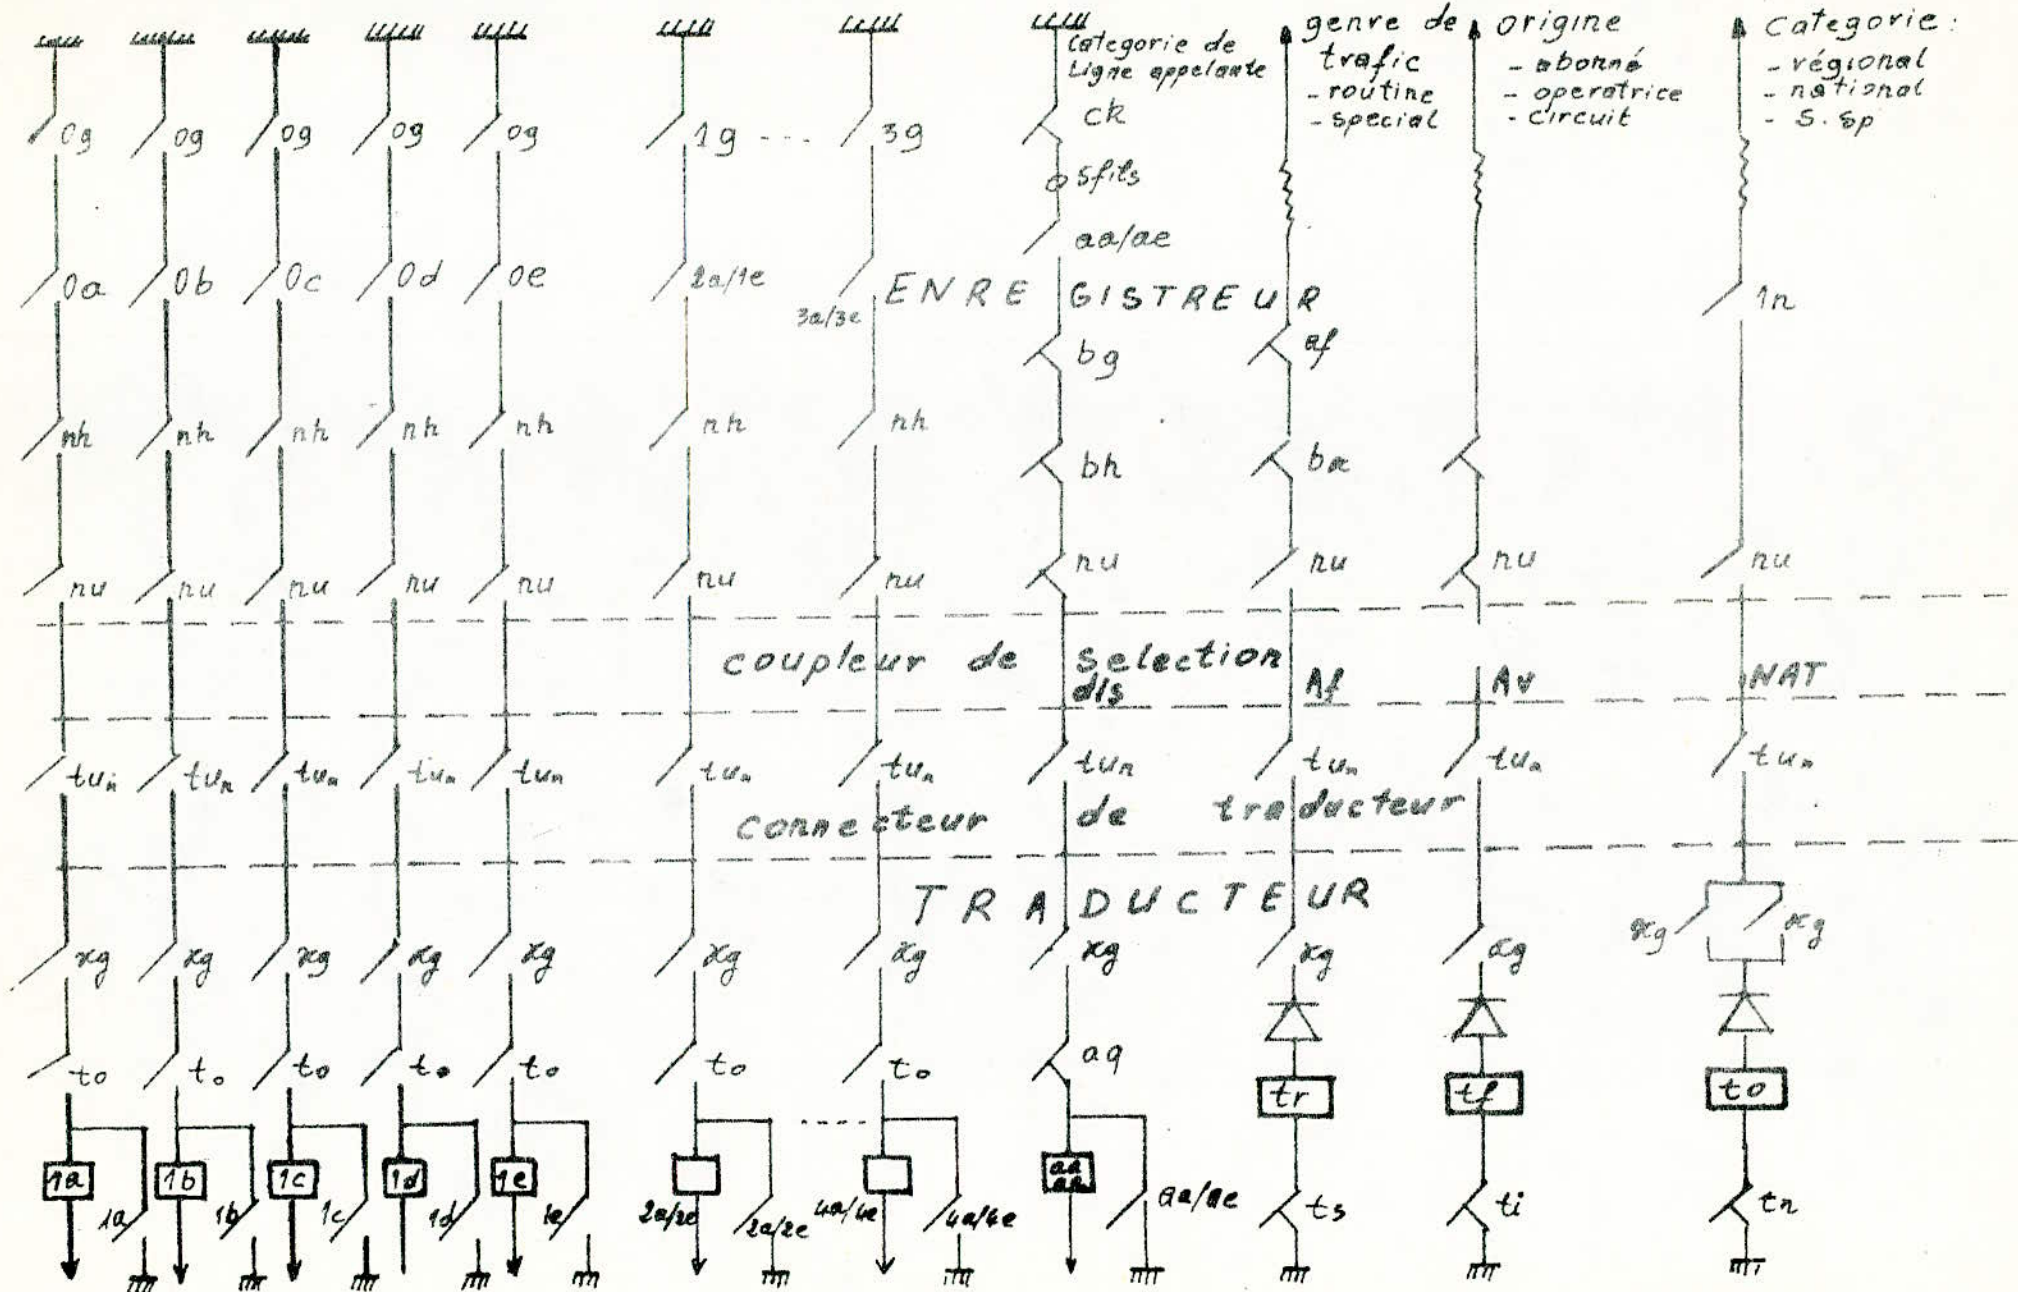 genre de
trafic
- routine
- special
origine
- abonné
- operatrice
- circuit
Categorie :
- régional
- national
- S. Sp
Categorie de
Ligne appelante
ck
0g 0g 0g 0g 0g 1g --- 3g
5fils
aa/ae
0a 0b 0c 0d 0e 2a/1e 3a/3e
ENREGISTREUR
1n
bg af
nh nh nh nh nh nh nh
bh ba
nu nu nu nu nu nu nu nu nu nu nu
coupleur de selection
dls Af Av NAT
tun tun tun tun tun tun tun tun tun tun tun
connecteur de traducteur
TRADUCTEUR
xg xg xg xg xg xg xg xg xg xg xg xg
to to to to to to to aq
tr tf to
1a 1b 1c 1d 1e aa
1a 1b 1c 1d 1e 2a/2e 2a/2e 4a/4e 4a/4e aa/ae ts ti tn